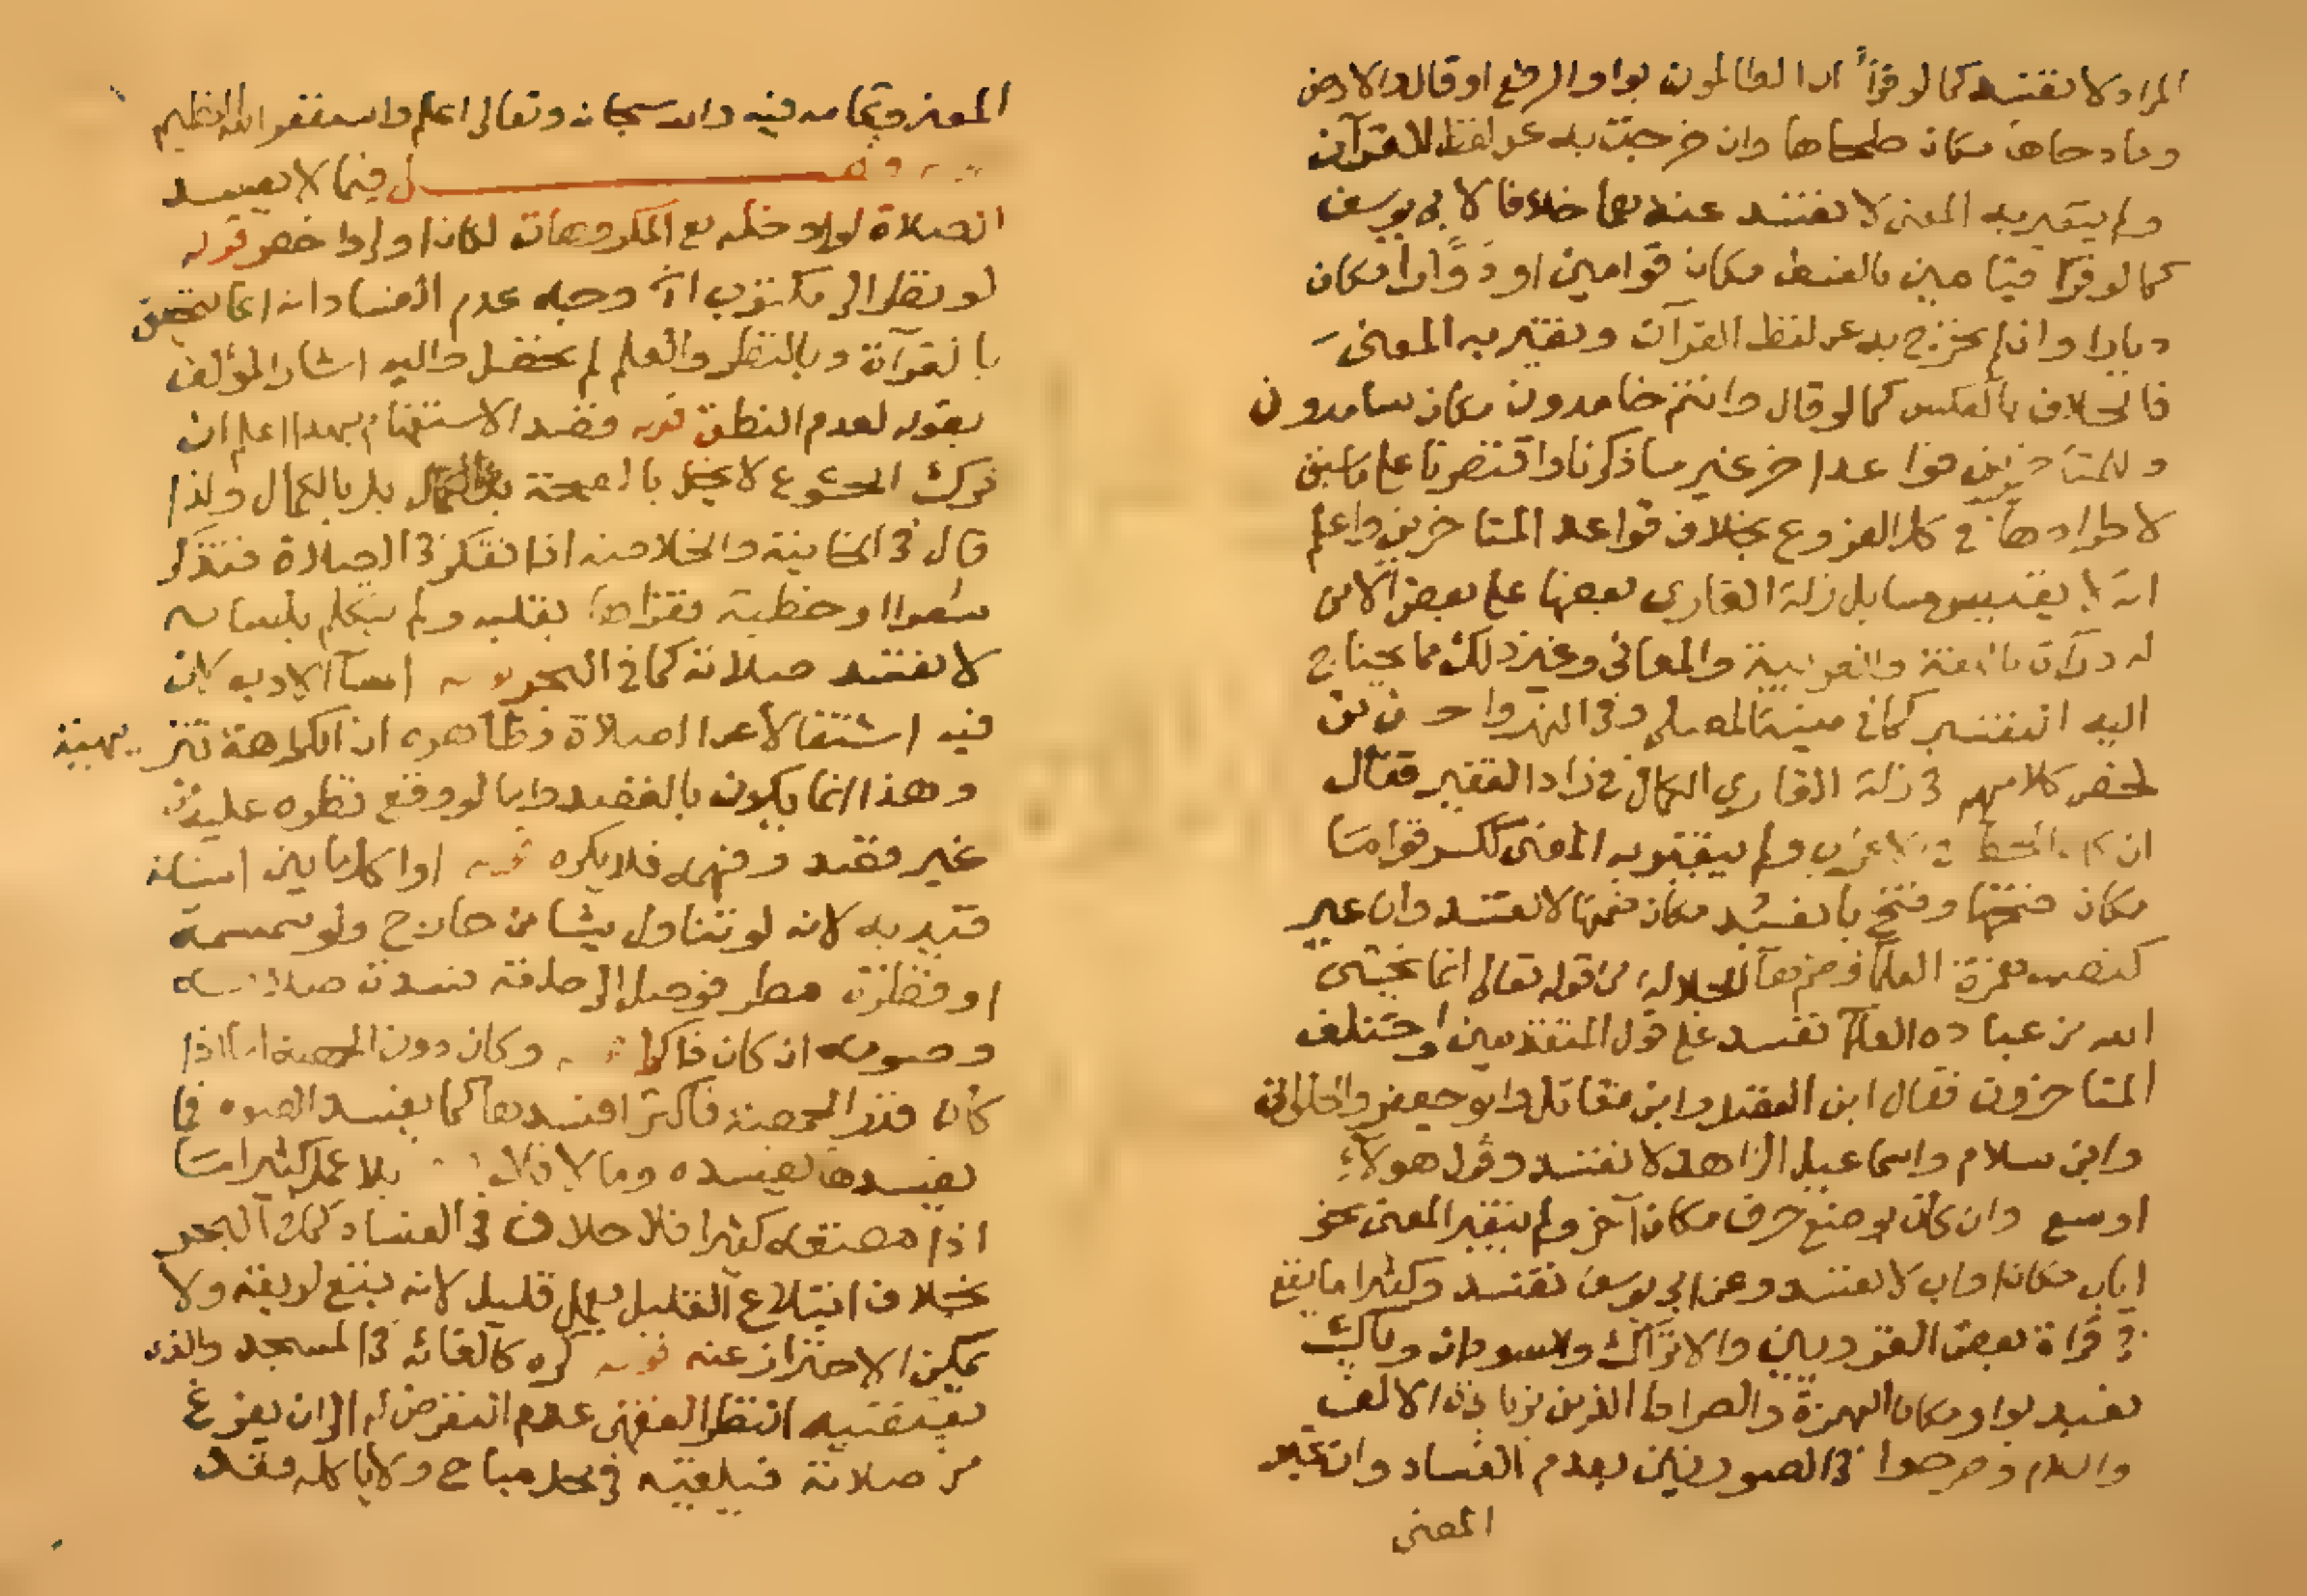 المراد لا تفسد كما لو قرأ ان الظالمون بواو الرفع او قال والارض
وما دحاها مكان طحاها وان خرجت به عن لفظ القرآن
ولم يتغير به المعنى لا تفسد عندهما خلافا لابي يوسف
كما لو قرا قيامين بالقسط مكان قوامين او دوارا مكان
ديارا وان لم يخرج به عن لفظ القرآن وتغير به المعنى
فالخلاف بالعكس كما لو قال وانتم خامدون مكان سامدون
وللمتاخرين قواعد اخر غير ما ذكرنا واقتصرنا على ما سبق
لاطرادها في كل الفروع بخلاف قواعد المتاخرين واعلم
انه لا يقيس مسايل زلة القاري بعضها على بعض الا من
له دراية باللغة والعربية والمعاني وغير ذلك مما يحتاج
اليه التفسير كما في منية المصلي وفي النهر واحسن من
لخص كلامهم في زلة القاري الكمال في زاد الفقير فقال
ان كان الخطا في الاعراب ولم يتغير به المعنى ككسر قواما
مكان فتحها وفتح با نعبد مكان ضمها لا تفسد وان غير
كنصب همزة العلما وضم هاء الجلالة من قوله تعالى انما يخشى
الله من عباده العلما تفسد على قول المتقدمين واختلف
المتاخرون فقال ابن الفضل وابن مقاتل وابو جعفر والحلواني
وابن سلام واسماعيل الزاهد لا تفسد وقول هولاء
اوسع وان كان بوضع حرف مكان آخر ولم يتغير المعنى نحو
اياب مكان اواب لا تفسد وعن ابي يوسف تفسد وكثيرا ما يقع
في قراة بعض القرويين والاتراك والسودان وياك
نعبد بواو مكان الهمزة والصراط الذين بزيادة الالف
واللام وصرحوا في الصورتين بعدم الفساد وان غير
المعنى
المعنى وتمامه فيه والله سبحانه وتعالى اعلم واستغفر الله العظيم
فصل فيما لا يفسد
الصلاة لو ادخله مع المكروهات لكان اولى اخصر قوله
لو نظر الى مكتوب الخ وجه عدم الفساد انه انما يتحقق
بالقرآة وبالنظر والعلم لم تحصل واليه اشار المؤلف
بقوله لعدم النطق قوله قصد الاستفهام بهذا اعلم ان
ترك الخشوع لا يخل بالصحة بل بالكمال ولذا
قال في الخانية والخلاصة اذا تفكر في الصلاة فتذكر
شعرا او خطبة فقراها بقلبه ولم يتكلم بلسانه
لا تفسد صلاته كما في البحر قوله اسآ الادب لان
فيه اشتغالا عن الصلاة وظاهره ان الكراهة تنزيهية
وهذا انما يكون بالقصد واما لو وقع نظره عليه من
غير قصد وفهمه فلا يكره قوله او اكل ما بين اسنانه
قيد به لانه لو تناول شيئا من خارج ولو سمسمة
او قطرة مطر فوصل الى حلقه فسدت صلاته
وصومه ان كان ذاكرا قوله وكان دون الحمصة اما اذا
كان قدر الحمصة فاكثر افسدها كما يفسد الصوم فما
يفسدها يفسده وما لا فلا قوله بلا عمل كثير اما
اذا مضغه كثيرا فلا خلاف في الفساد كما في البحر
بخلاف ابتلاع القليل بعمل قليل لانه يتبع لريقه ولا
يمكن الاحتراز عنه قوله كره كالقائه في المسجد والذي
يقتضيه النظر الفقهي عدم التعرض له الى ان يفرغ
من صلاته فيلقيه في محل مباح ولا ياكله فقد